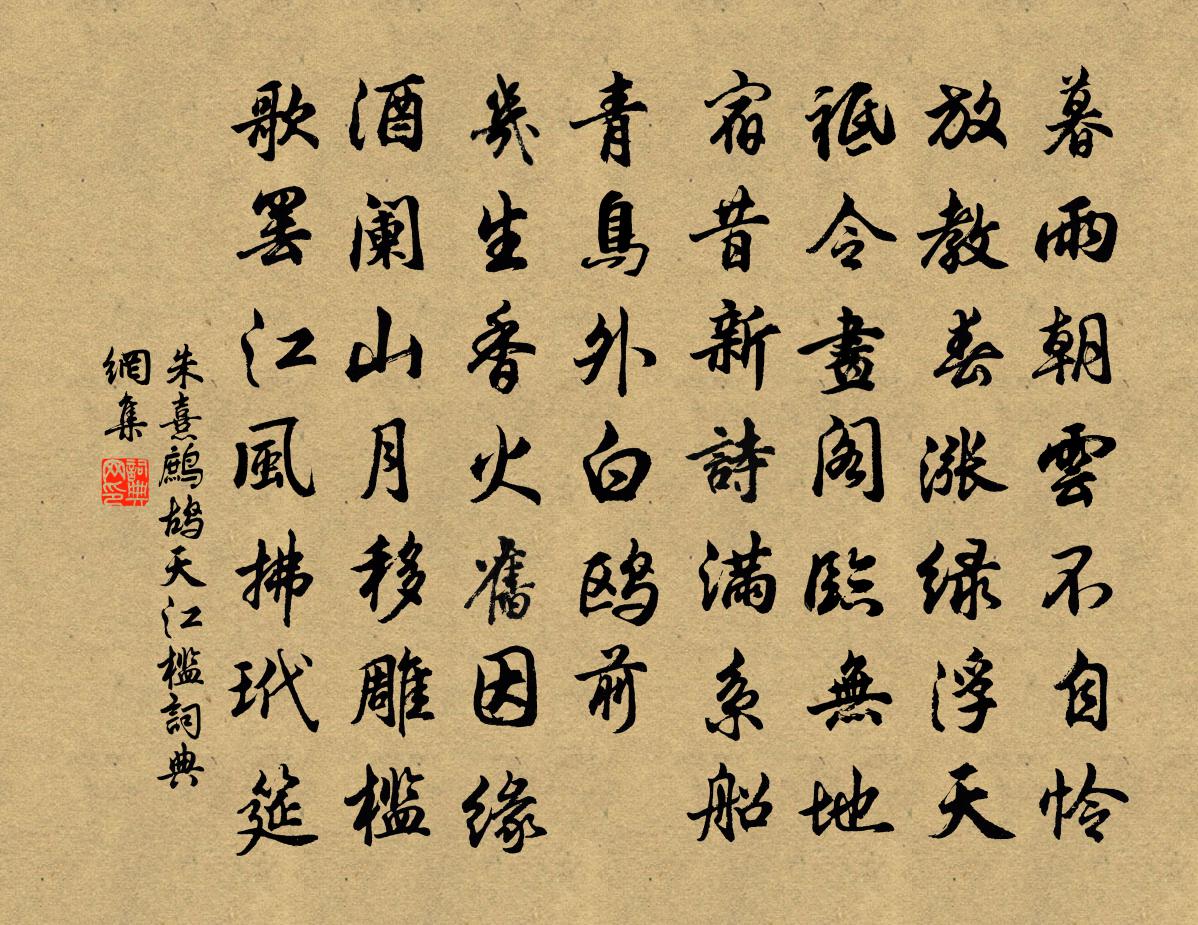 暮雨朝雲不自怜
放教春漲緑浮天
祗令畫閣臨無地
宿昔新詩滿系船
青鳥外白鷗前
幾生香火舊因緣
酒阑山月移雕檻
歌罢江風拂玳筵
朱熹鷓鴣天江檻詞典
網集
詞典网印